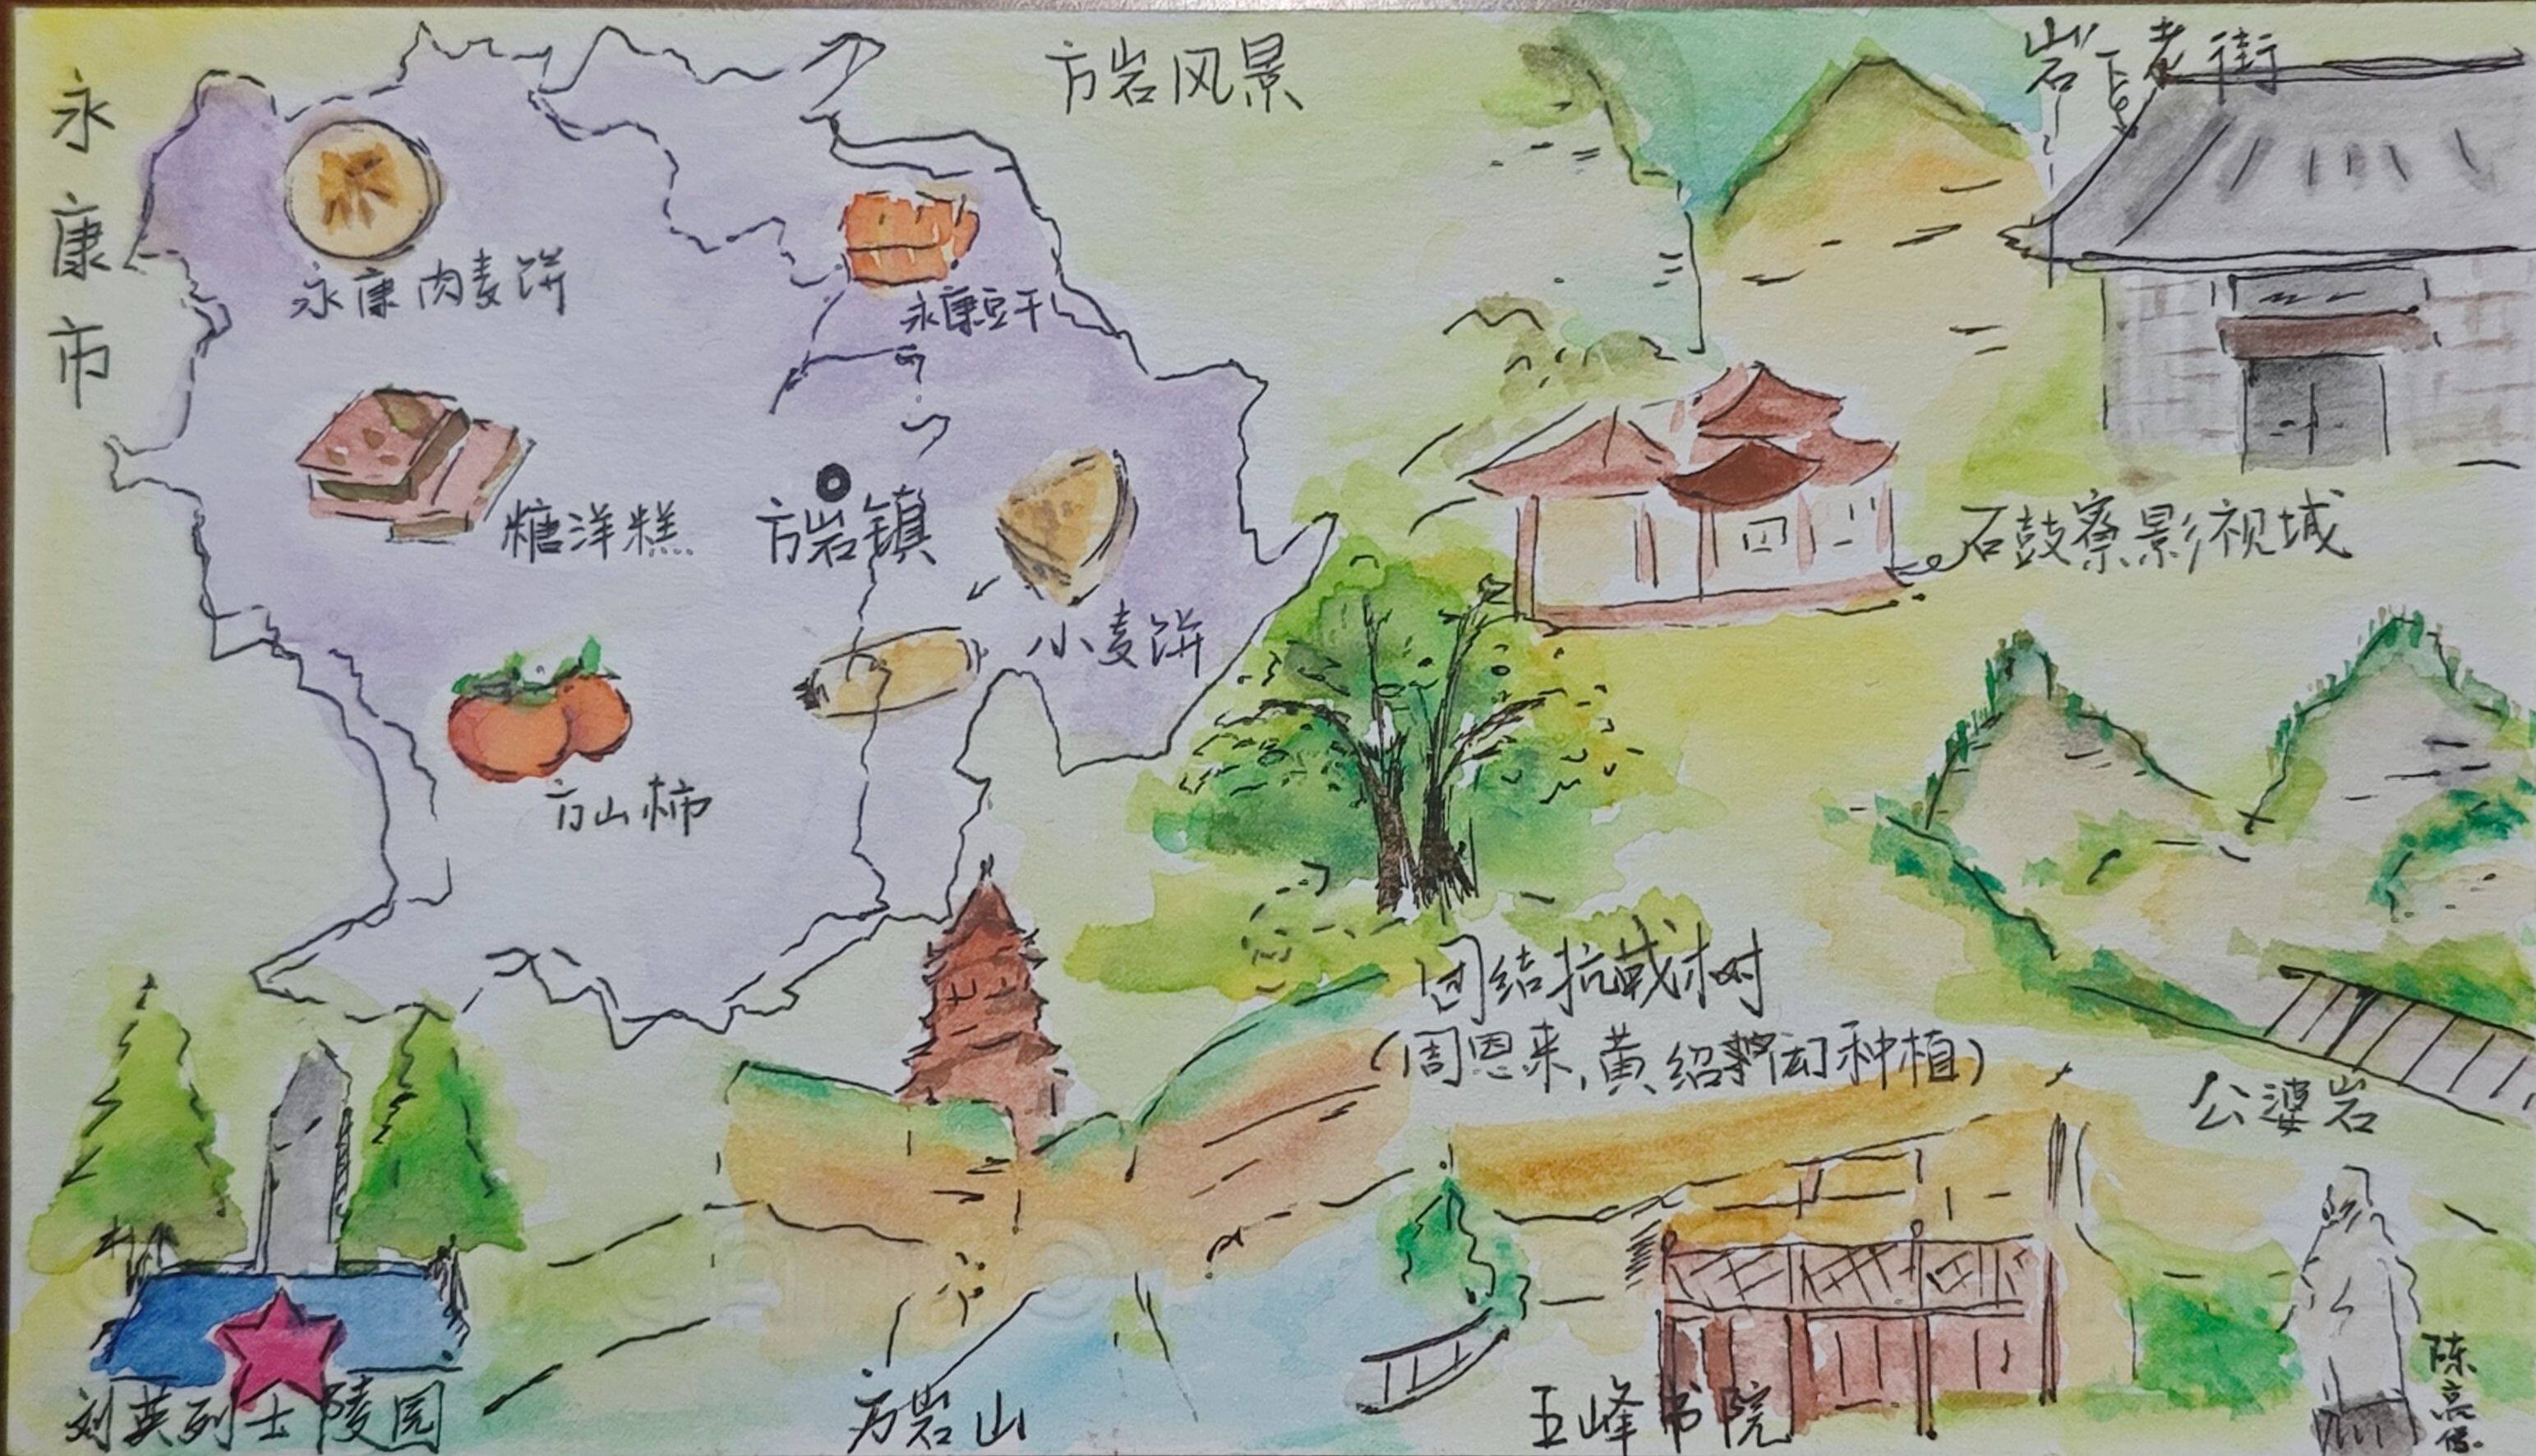 永康市
方岩风景
岩下老街
永康肉麦饼
永康豆干
糖洋糕
方岩镇
小麦饼
方山柿
石鼓寮影视城
团结抗战树
(周恩来,黄绍竑种植)
公婆岩
刘英烈士陵园
方岩山
五峰书院
陈亮像